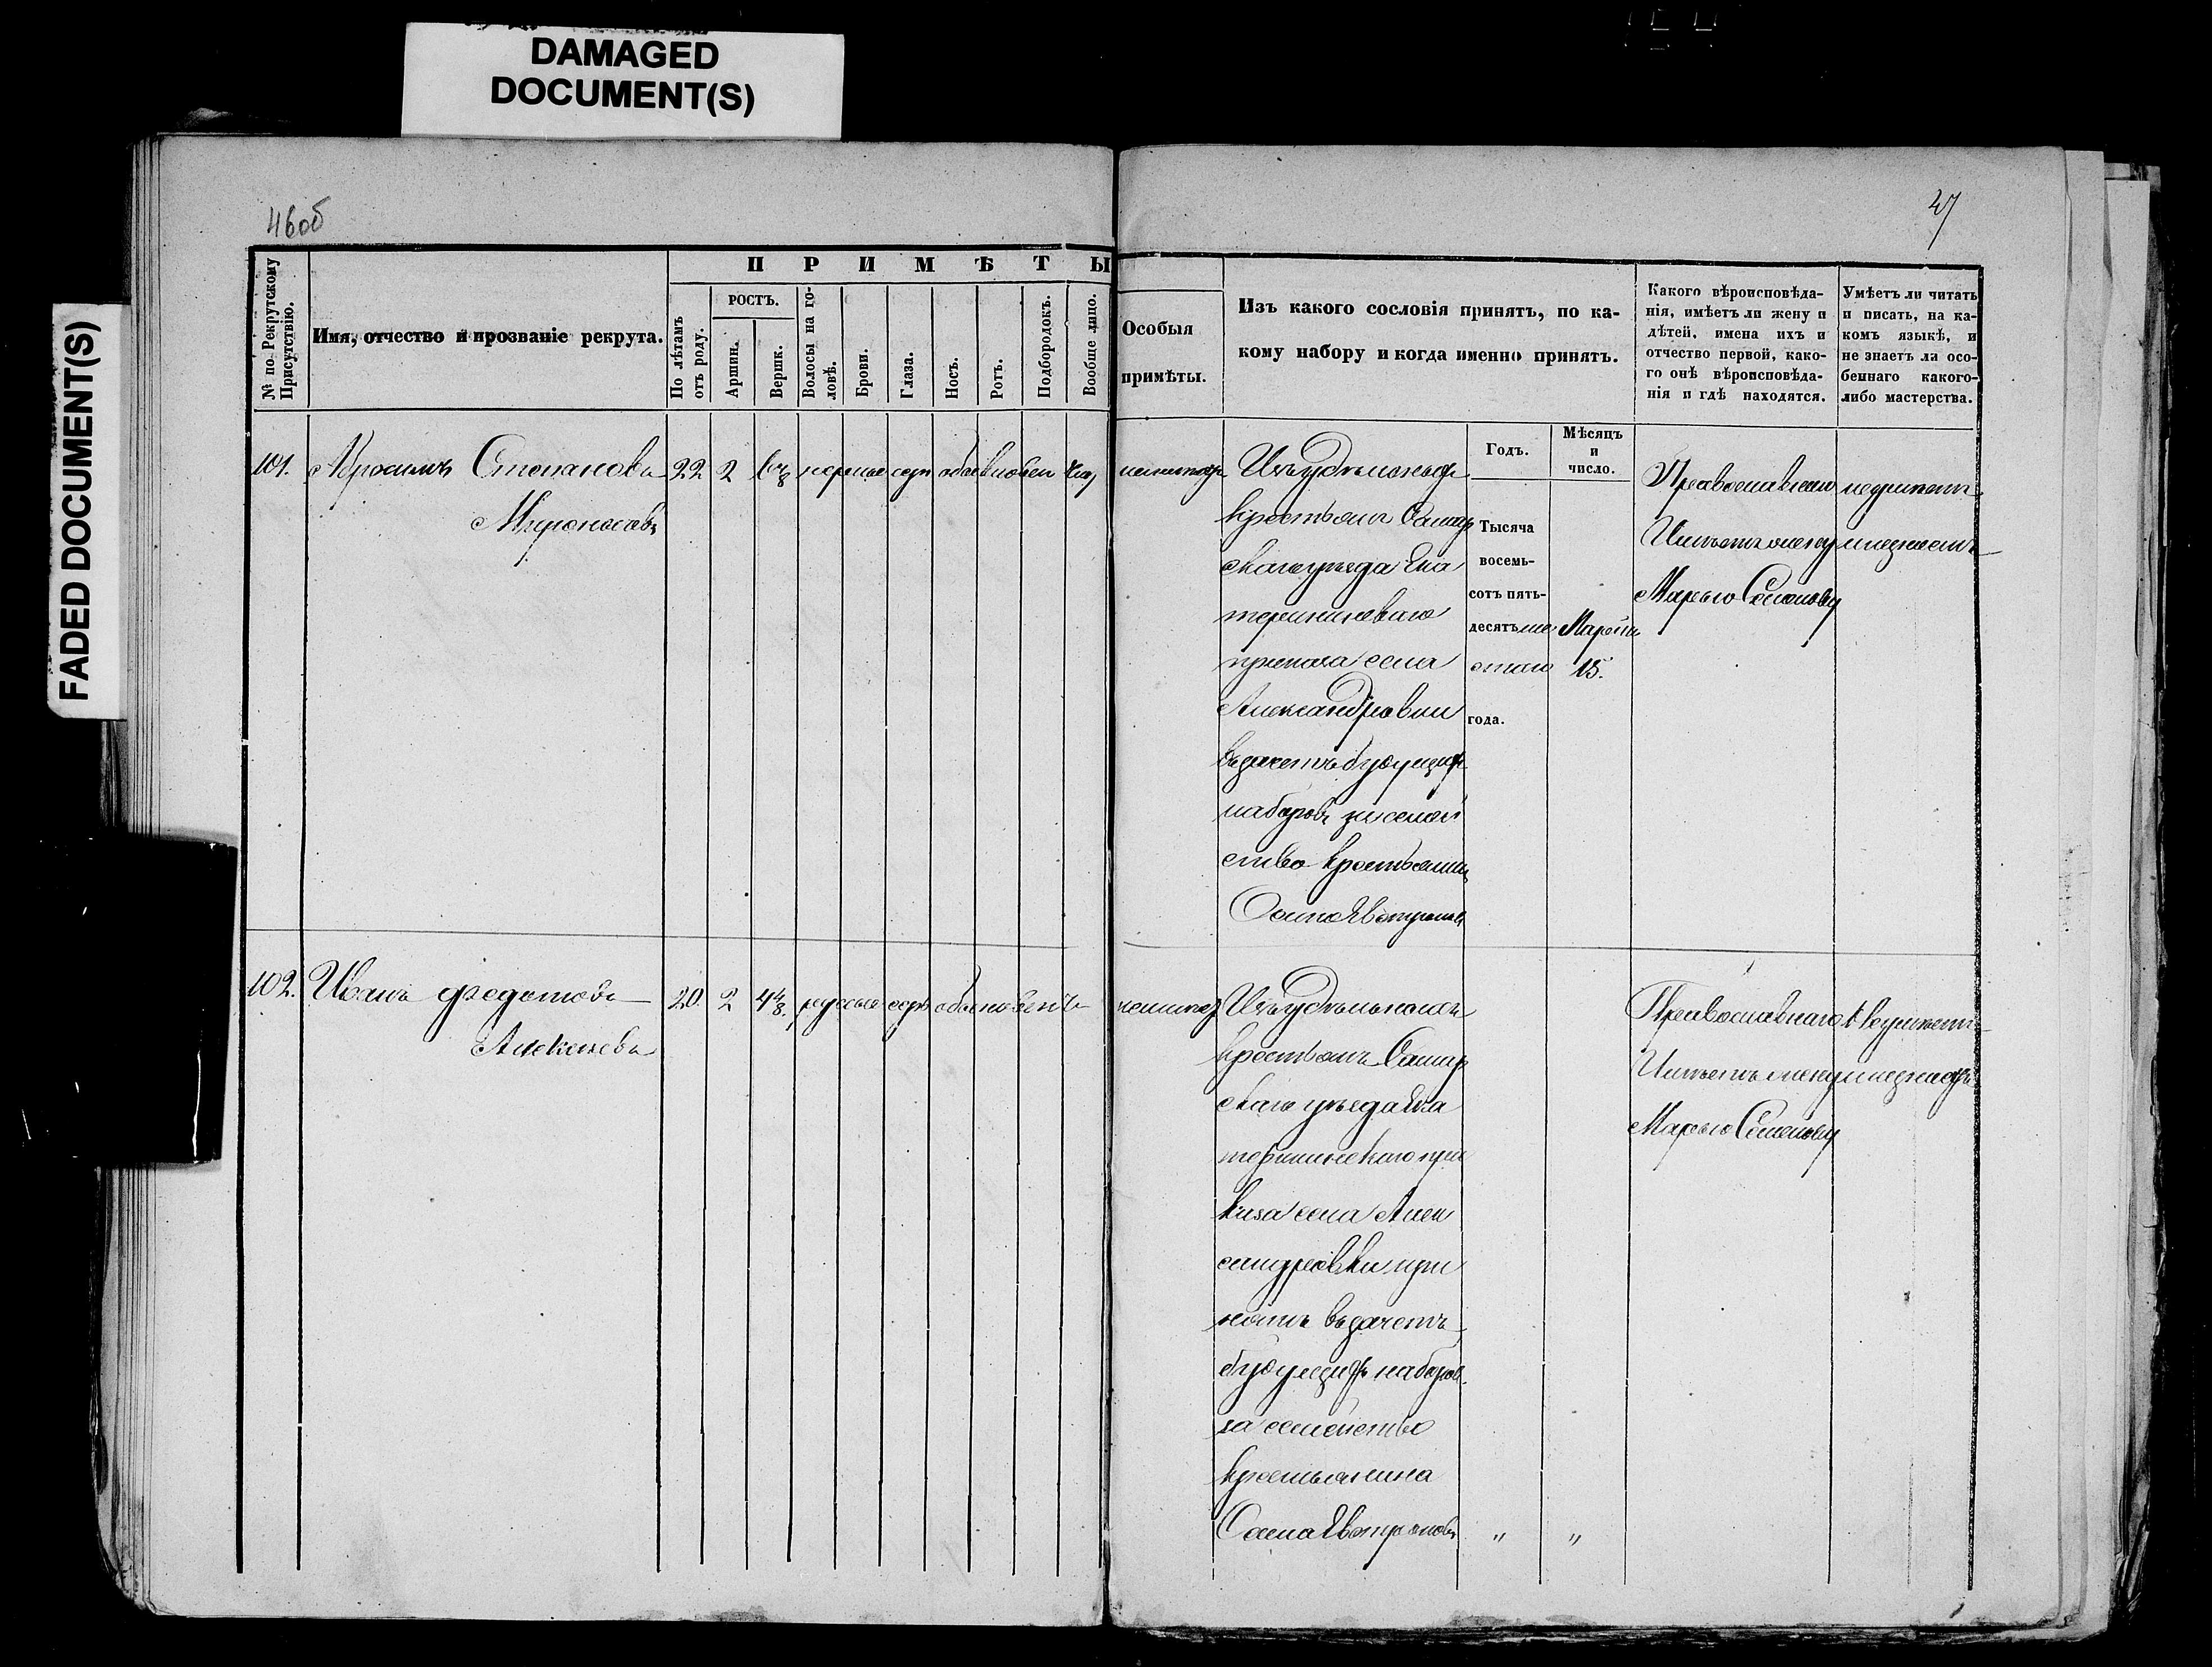 DAMAGED
DOCUMENT(S)
FADED DOCUMENT(S)
46об
47
№ по Рекрутскому Присутствію.
Имя, отчество и прозваніе рекрута.
ПРИМѢТЫ
По лѣтамъ отъ роду.
РОСТЪ.
Аршин.
Вершк.
Волосы на головѣ.
Брови.
Глаза.
Носъ.
Ротъ.
Подбородокъ.
Вообще лицо.
Особыя
примѣты.
Изъ какого сословія принятъ, по ка-
кому набору и когда именно принятъ.
Какого вѣроисповѣда-
нія, имѣетъ ли жену и
дѣтей, имена ихъ и
отчество первой, како-
го онѣ вѣроисповѣда-
нія и гдѣ находятся.
Умѣетъ ли читать
и писать, на ка-
комъ языкѣ, и
не знаетъ ли осо-
беннаго какого-
либо мастерства.
Годъ.
Мѣсяцъ
и
число.
101. Абросимъ Степановъ 22 2
Изъ удѣльныхъ
крестьянъ Самар
скаго уѣзда Ека
терининскаго
приказа села
Александровки
въ зачетъ будущихъ
наборовъ за семей
ство крестьянина
Тысяча
восемь-
сотъ пять-
десять ше
стаго
года.
Марта
15.
Православнаго
Имѣетъ жену
Марью Семенову
102. Иванъ Федотовъ 20. 2 4 4/8 русые
Алексѣевъ
Изъ удѣльныхъ
крестьянъ Самар
скаго уѣзда Ека
терининскаго при
каза села Алек
сандровки при
нятъ въ зачетъ
будущихъ наборов.
за семейство
крестьянина
" "
Православнаго
Имѣетъ жену
Марью Семенову